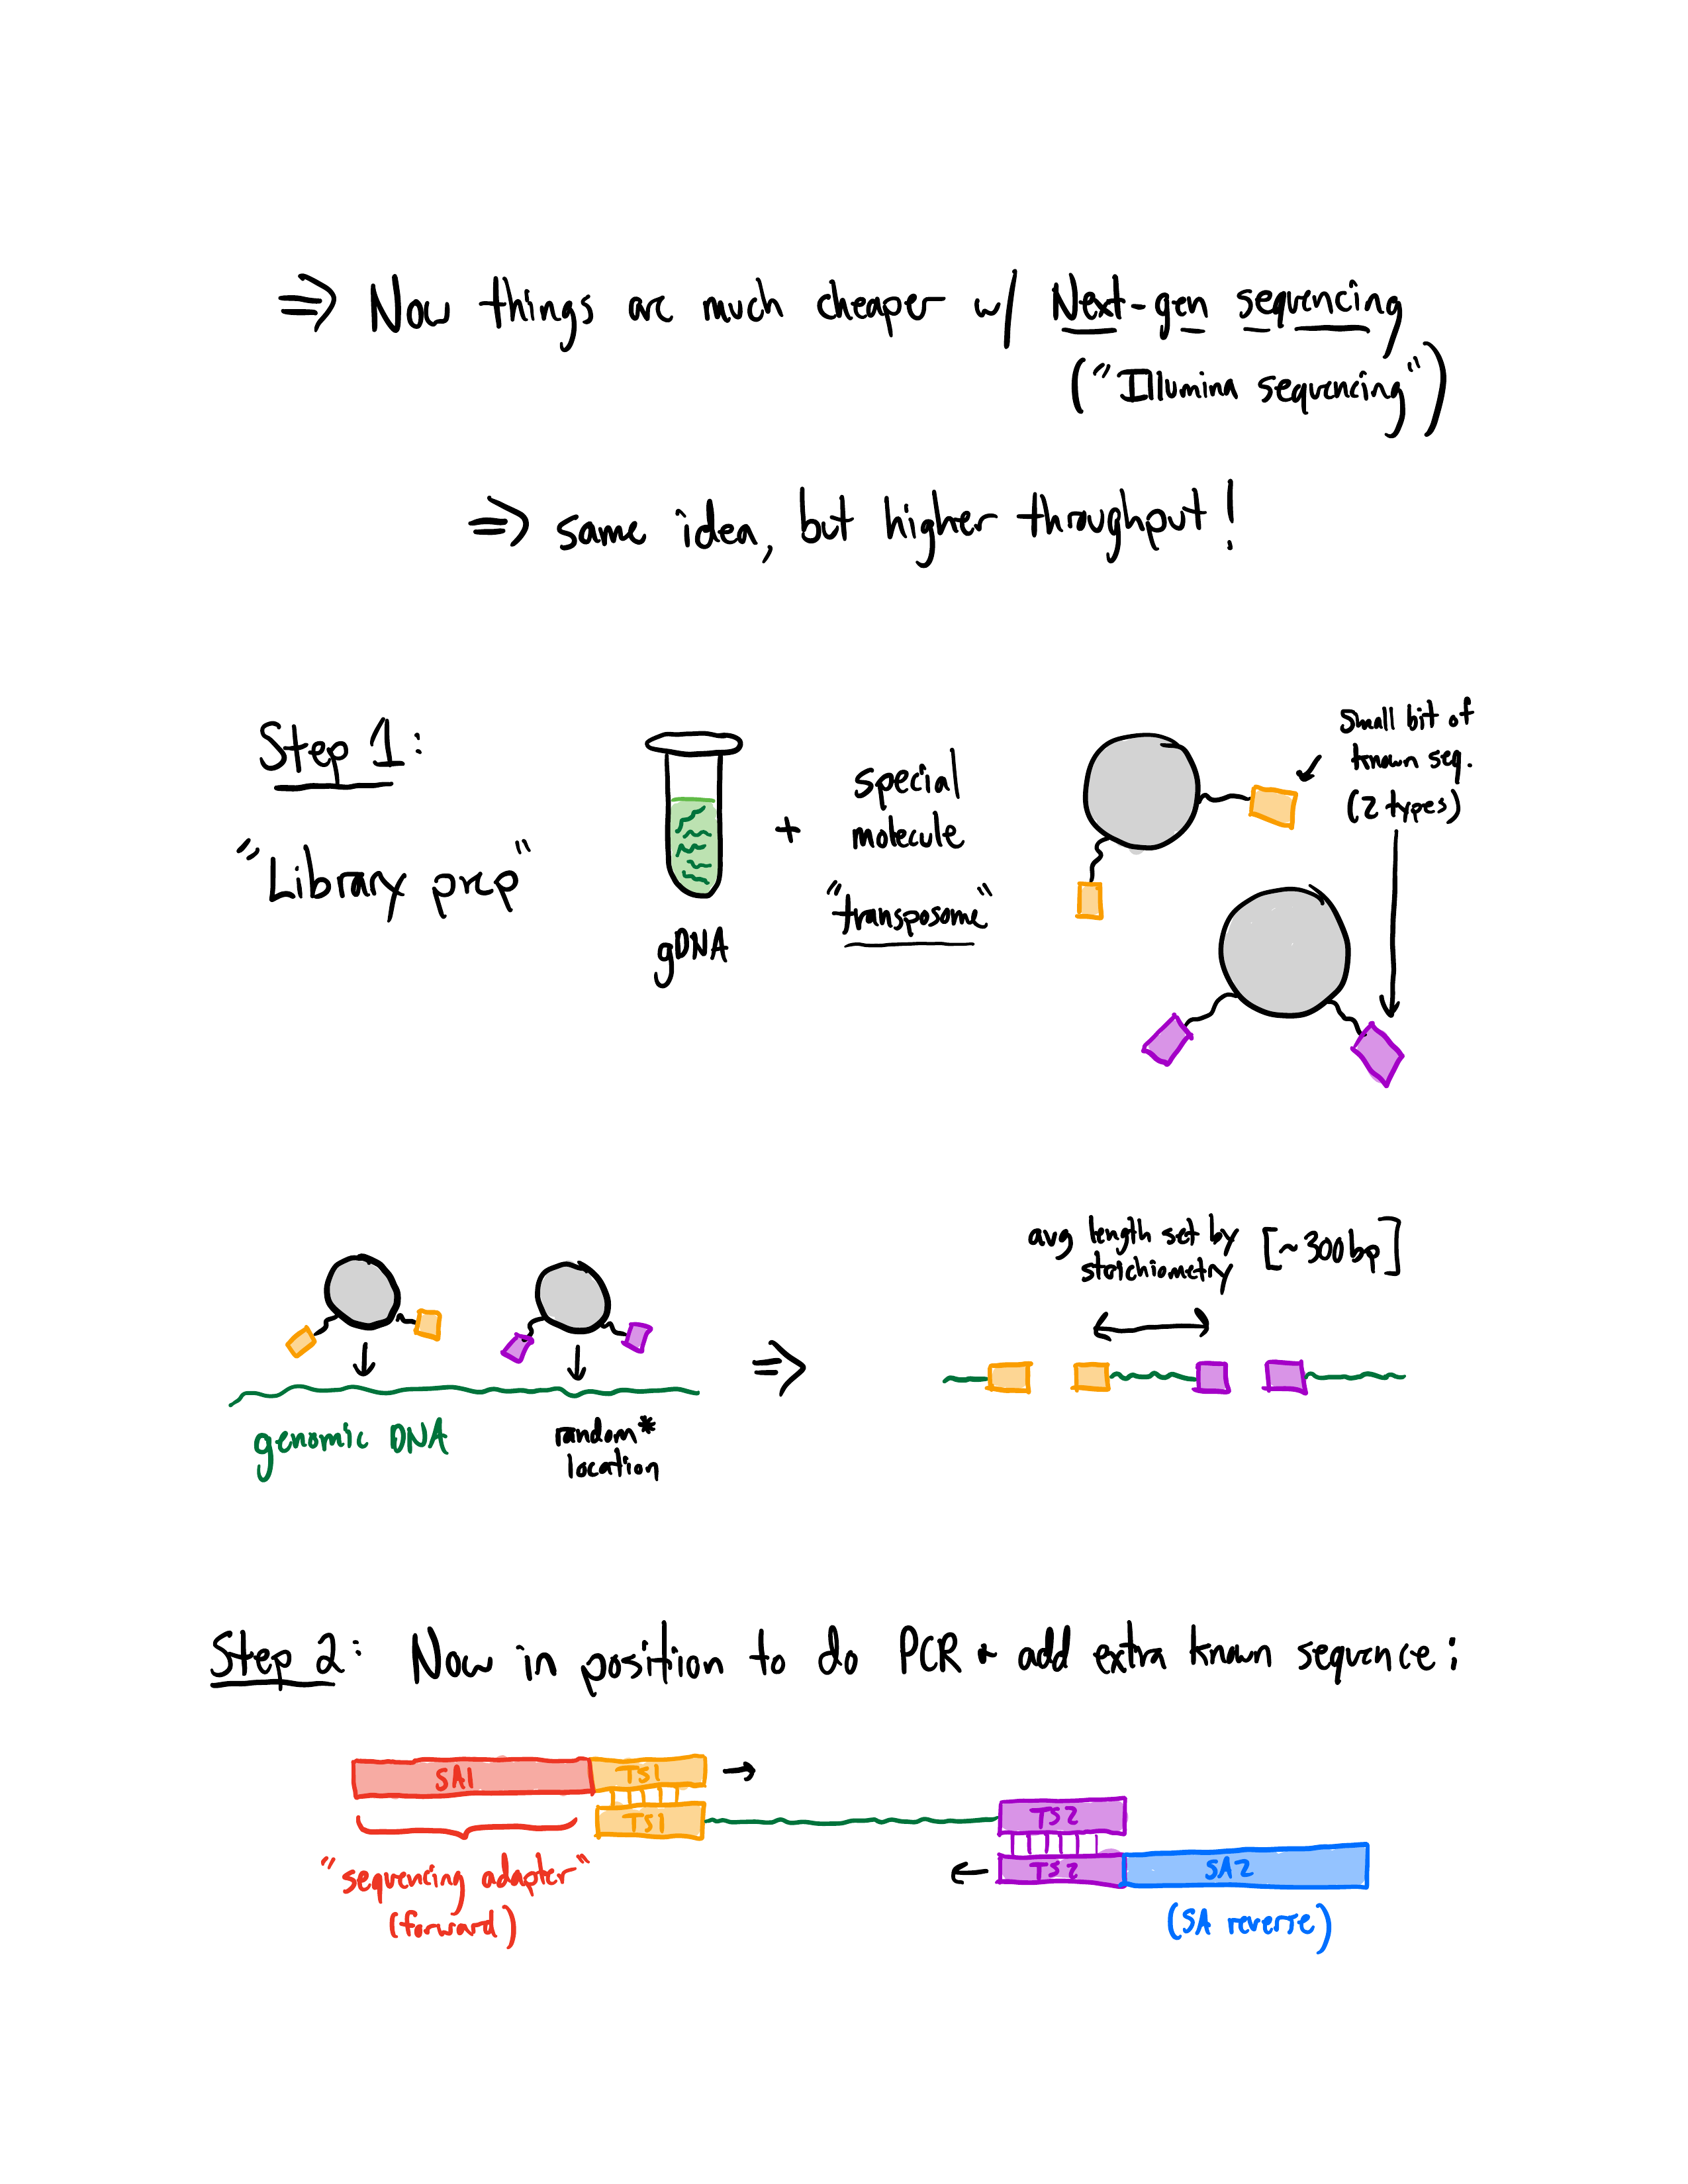 ⇒ Now things are much cheaper w/ Next-gen sequencing
("Illumina sequencing")
⇒ same idea, but higher throughput!
Step 1:
"Library prep"
gDNA
+
special
molecule
"transposome"
small bit of
known seq.
(2 types)
genomic DNA
random*
location
⇒
avg length set by
stoichiometry
[~300bp]
Step 2: Now in position to do PCR + add extra known sequence:
SA1
TS1
TS1
"sequencing adapter"
(forward)
TS2
TS2
SA2
(SA reverse)